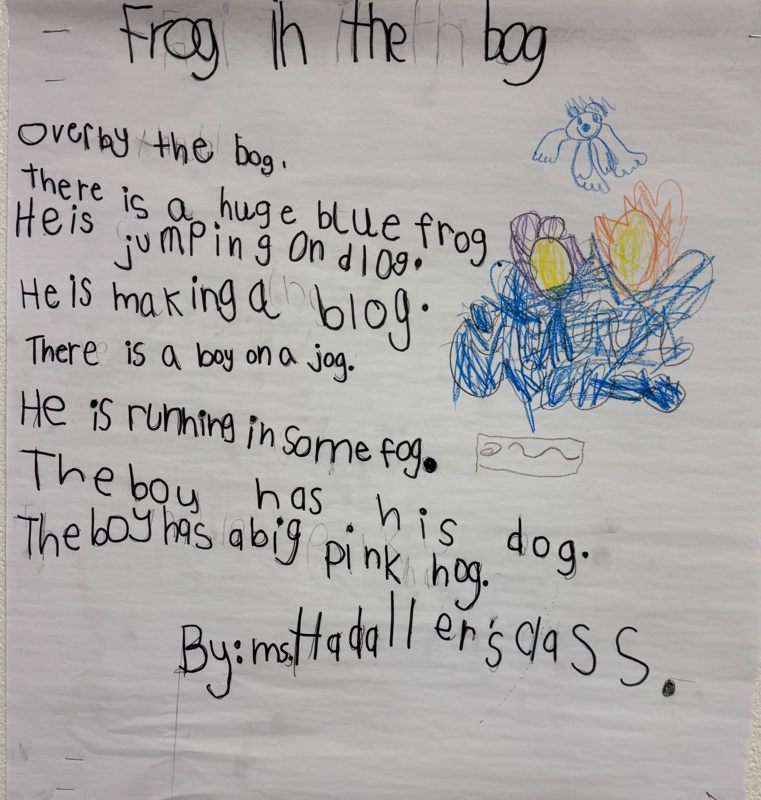 Frog in the bog
Over by the bog.
there is a huge blue frog
He is jumping on a log.
He is making a blog.
There is a boy on a jog.
He is running in some fog.
The boy has his dog.
The boy has a big pink hog.
By: ms. Hadaller's class.